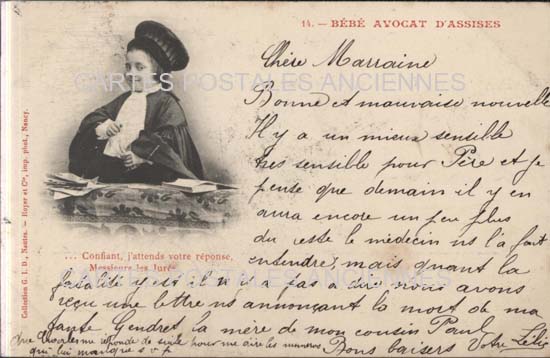 14. — BÉBÉ AVOCAT D'ASSISES
CARTES POSTALES ANCIENNES
Chère Marraine
Bonne et mauvaise nouvelle
Il y a un mieux sensible
très sensible pour Père et je
pense que demain il y en
aura encore un peu plus
du reste le médecin ns l'a fait
entendre, mais quant la
fatalité y est il n'y a pas à dire nous avons
reçu une lettre ns annonçant la mort de ma
tante Gendret, la mère de mon cousin Paul
Bons baisers Votre
que Charles me réponde de suite pour me dire les numéros
qui lui manque s v p
... Confiant, j'attends votre réponse,
Messieurs les Jurés
CARTES POSTALES ANCIENNES
Collection G. I. D., Nantes. — Royer et Cie, imp. phot., Nancy.